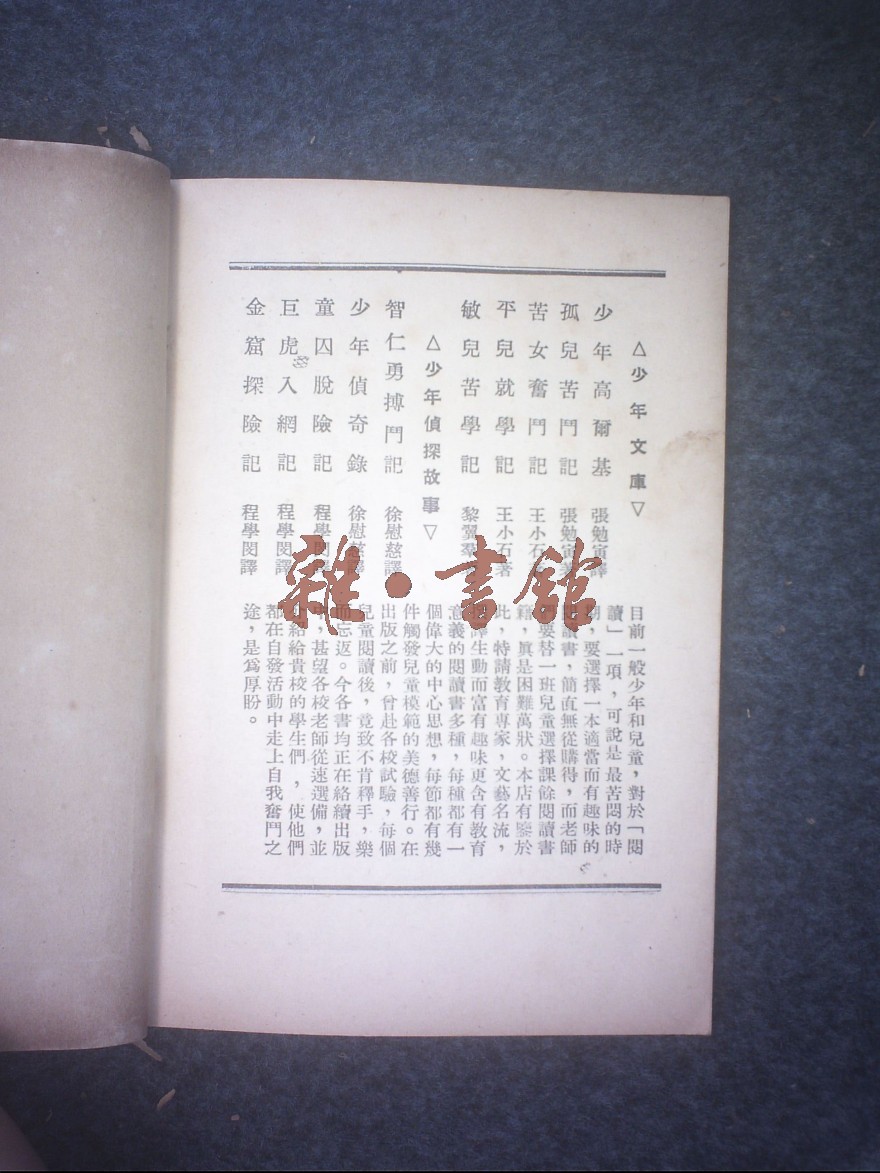 △少年文庫▽
少年高爾基 張勉寅譯
孤兒苦鬥記 張勉寅
苦女奮鬥記 王小石
平兒就學記 王小石著
敏兒苦學記 黎翼羣
△少年偵探故事▽
智仁勇搏鬥記 徐慰慈譯
少年偵奇錄 徐慰慈譯
童囚脫險記 程學閔譯
巨虎入網記 程學閔譯
金窟探險記 程學閔譯
目前一般少年和兒童，對於「閱
讀」一項，可說是最苦悶的時
期，要選擇一本適當而有趣味的
讀書，簡直無從購得，而老師
要替一班兒童選擇課餘閱讀書
籍，眞是困難萬狀。本店有鑒於
此，特請教育專家，文藝名流，
譯生動而富有趣味更含有教育
意義的閱讀書多種，每種都有一
個偉大的中心思想，每節都有幾
件觸發兒童模範的美德善行。在
出版之前，曾赴各校試驗，每個
兒童閱讀後，竟致不肯釋手，樂
而忘返。今各書均正在絡續出版
中，甚望各校老師從速選備，並
給給貴校的學生們，使他們
都在自發活動中走上自我奮鬥之
途，是爲厚盼。
雜·書館